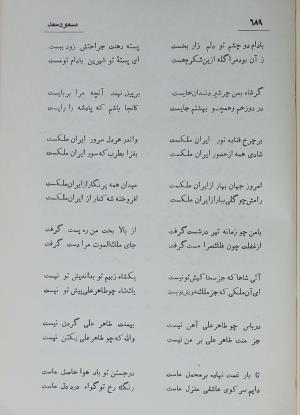 ۶۸۹ مسعود سعد
بادام دو چشم تو دلم زار بخست پسته دهنت جراحتش زود ببست
ز آن بود مرا گله ازین شکرم هست ای پستهٔ تو شیرین بادام تو مست
گر شاه بمن چو شیر دندان خایست بر پیل نهند آنچه مرا برپایست
در دوزخم و همچو بهشتم جایست کانجا باشم که پادشه را رایست
بر چرخ فتاده نور ایران ملکست واندر هر دل سرور ایران ملکست
شادی همه از حضور ایران ملکست بفزا بطرب که سور ایران ملکست
امروز جهان بهار از ایران ملکست میدان همه پرنگار از ایران ملکست
رامش چو گلی ببار از ایران ملکست افروخته شه کنار از ایران ملکست
با من چو زمانه تهر در دست گرفت از بالا بخت من ره پست گرفت
از غفلت چون فلک مرا مست گرفت جای ملک الموت مرا دست گرفت
آنی شاها که جز سخا کیش تو نیست یکشاه زبیم تو بداندیش تو نیست
ای آن ملکی که جز ملک خویش تو نیست یک شاه چو طاهر علی پیش تو نیست
دریابی چو طاهر علی آهن نیست بیمنت طاهر علی گردن نیست
جز منت طاهر علی بر من نیست والله که چو طاهر علی یک تن نیست
تا بار غمت نهاده بر محمل ماست در جستن تو باد هوا حاصل ماست
دایم سر کوی عاشقی منزل ماست رنگ رخ تو گواه درد دل ماست